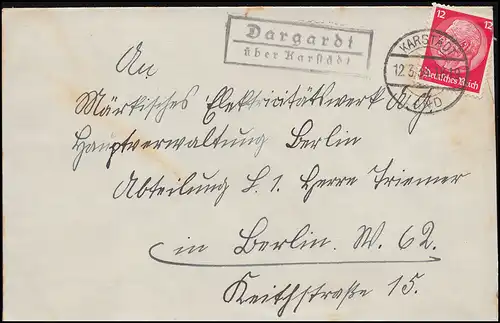 Dargardt
über Karstädt
KARSTÄDT
12.3.
12 12
Deutsches Reich
An
Märkisches Elektricitätswerk A.G.
Hauptverwaltung Berlin
Abteilung L. 1. Herrn Triemer
in Berlin. W. 62.
Keithstraße 15.